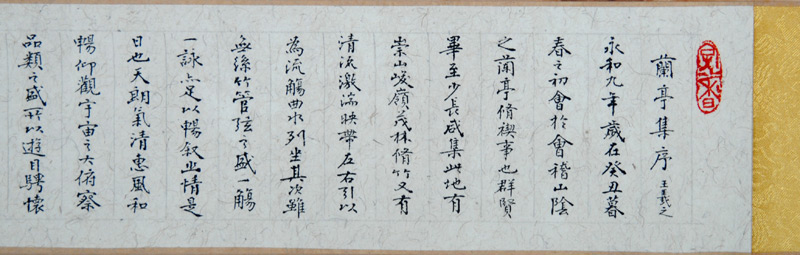 蘭亭集序 王羲之
永和九年歲在癸丑暮
春之初會於會稽山陰
之蘭亭脩禊事也群賢
畢至少長咸集此地有
崇山峻嶺茂林脩竹又有
清流激湍映帶左右引以
為流觴曲水列坐其次雖
無絲竹管弦之盛一觴
一詠亦足以暢敘幽情是
日也天朗氣清惠風和
暢仰觀宇宙之大俯察
品類之盛所以遊目騁懷